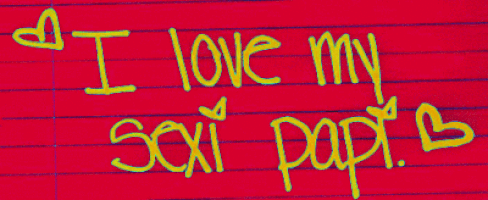 I love my
sexi papi.